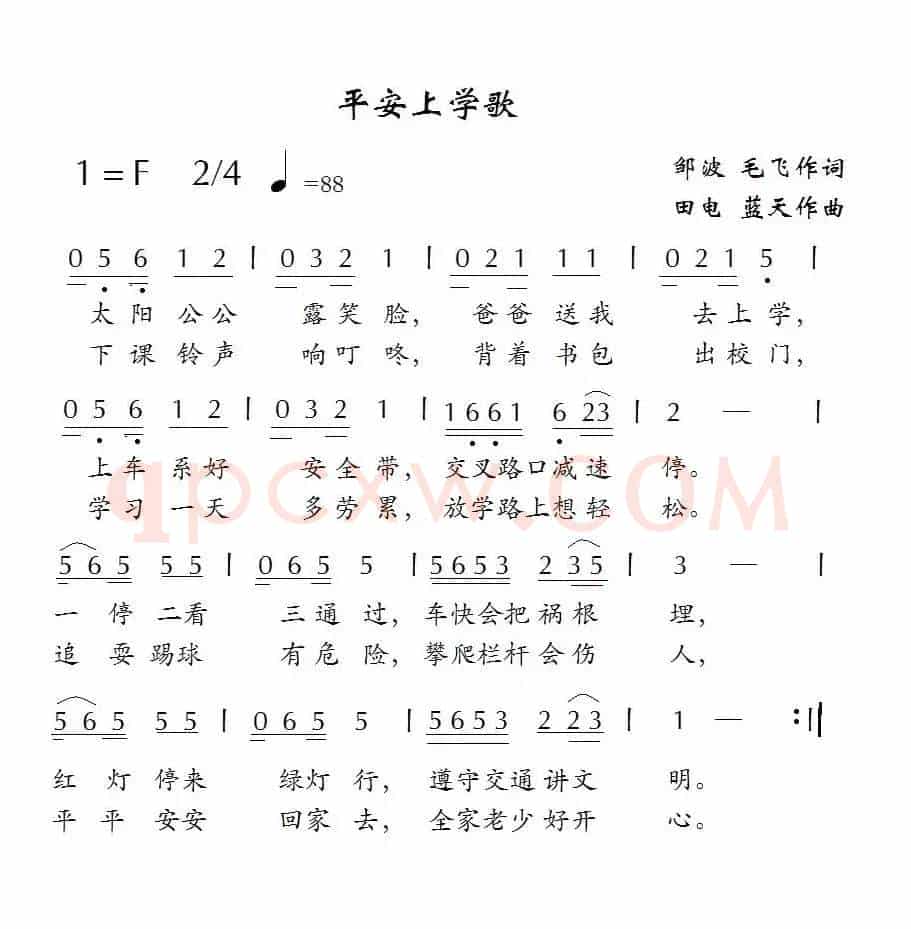 平安上学歌
1=F 2/4 ♩=88
邹波 毛飞作词
田电 蓝天作曲
0 5̣ 6̣ 1 2 | 0 3 2 1 | 0 2 1 1 1 | 0 2 1 5̣ |
太阳公公 露笑脸, 爸爸送我 去上学,
下课铃声 响叮咚, 背着书包 出校门,
0 5̣ 6̣ 1 2 | 0 3 2 1 | 1 6̣ 6̣ 1 6̣ 2 3 | 2 — |
上车系好 安全带, 交叉路口减速 停。
学习一天 多劳累, 放学路上想轻 松。
qpcxw.COM
5 6 5 5 5 | 0 6 5 5 | 5 6 5 3 2 3 5 | 3 — |
一停二看 三通过, 车快会把祸根 埋,
追耍踢球 有危险, 攀爬栏杆会伤 人,
5 6 5 5 5 | 0 6 5 5 | 5 6 5 3 2 2 3 | 1 — :||
红灯停来 绿灯行, 遵守交通讲文 明。
平平安安 回家去, 全家老少好开 心。